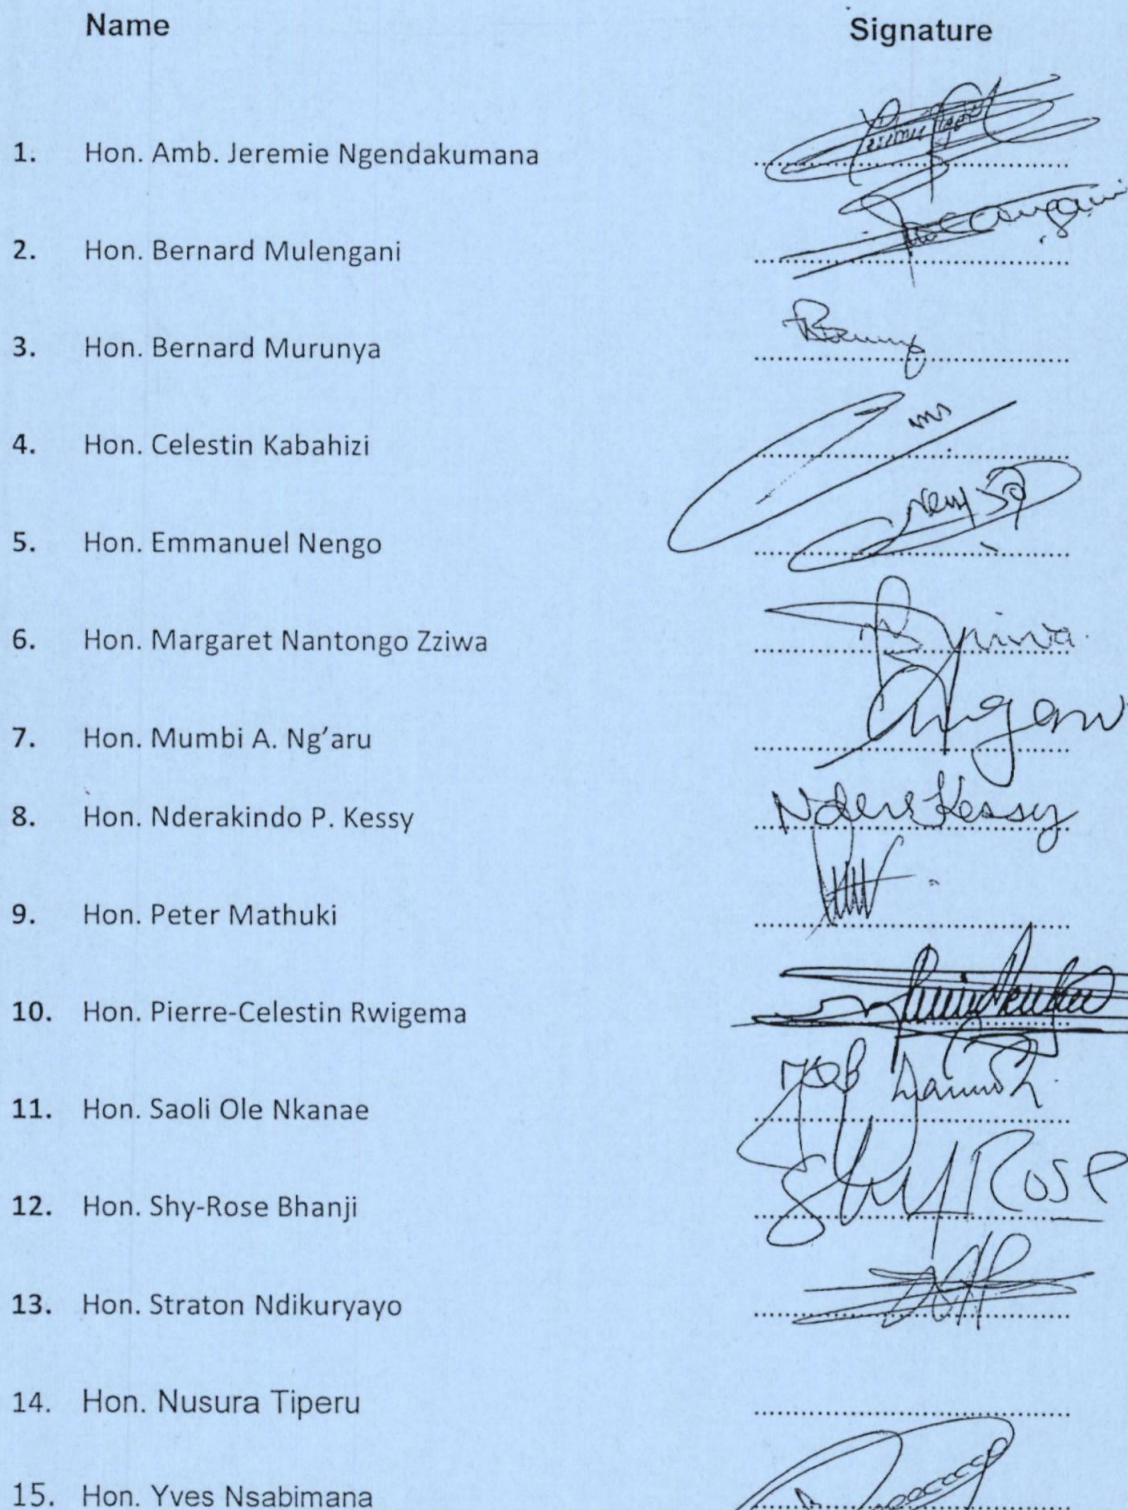 Name Signature
1. Hon. Amb. Jeremie Ngendakumana
2. Hon. Bernard Mulengani
3. Hon. Bernard Murunya
4. Hon. Celestin Kabahizi
5. Hon. Emmanuel Nengo
6. Hon. Margaret Nantongo Zziwa
7. Hon. Mumbi A. Ng’aru
8. Hon. Nderakindo P. Kessy Ndere Kessy
9. Hon. Peter Mathuki
10. Hon. Pierre-Celestin Rwigema
11. Hon. Saoli Ole Nkanae
12. Hon. Shy-Rose Bhanji Shy Rose
13. Hon. Straton Ndikuryayo
14. Hon. Nusura Tiperu
15. Hon. Yves Nsabimana